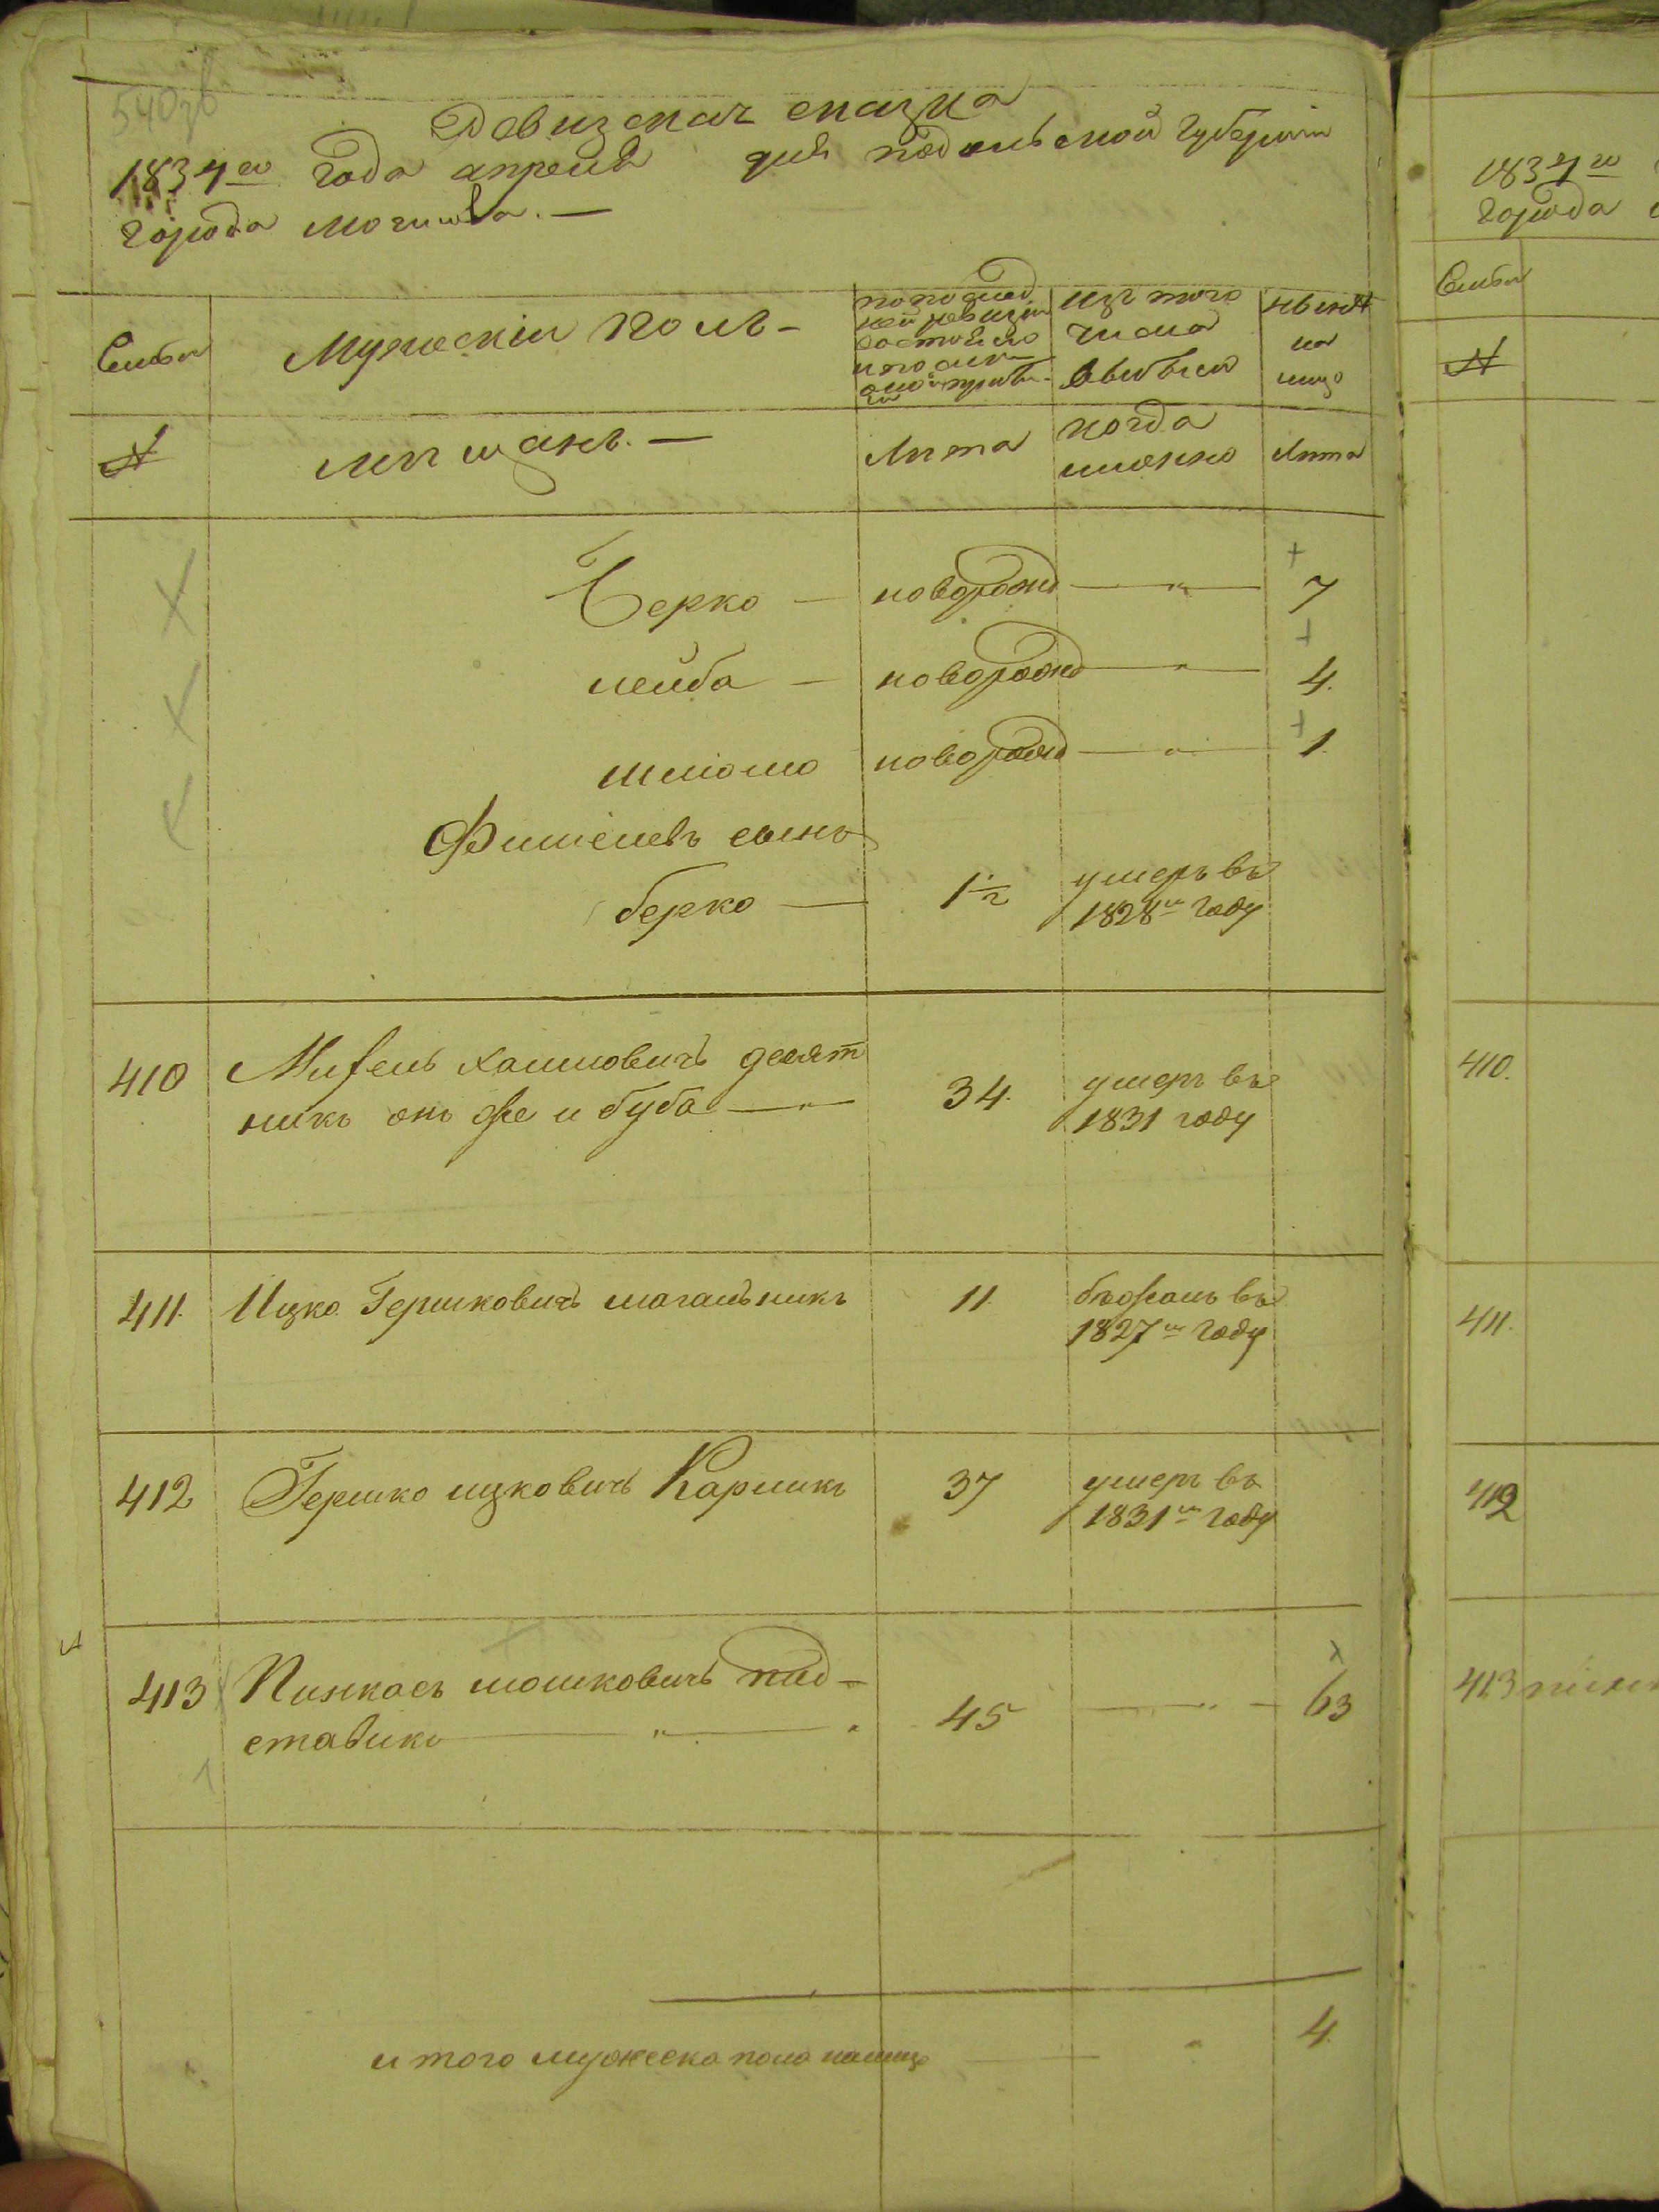 540зв
Ревизская сказка
1834го года апреля дня подольской губернии
города могилева. —
Семьи
Мужескій полъ —
по послед
ней ревизіи
состояло
и после
оной прибы
ло
изъ того
числа
выбыло
ныне
на
лицо
№
мещанъ. —
Лета
когда
именно
Лета
Берко — новорожд — " — 7
лейба — новорожд — " — 4.
шліомо новорожд — " — 1
Фишелевъ сынъ
берко — 1½ умеръ въ
1828м году
410 Мижель хаимовичъ десят
никъ онъ же и буба — " — 34. умеръ въ
1831 году
411. Ицко Гершковичъ магальникъ 11 бежалъ въ
1827м году
412 Гершко ицковичъ Карликъ 37 умеръ въ
1831м году
413 Пинкасъ мошковичъ под-
ставика — " — 45 — " — 63
4
итого мужеска пола налицо
1834го
города
Семьи
№
410.
411.
412
413